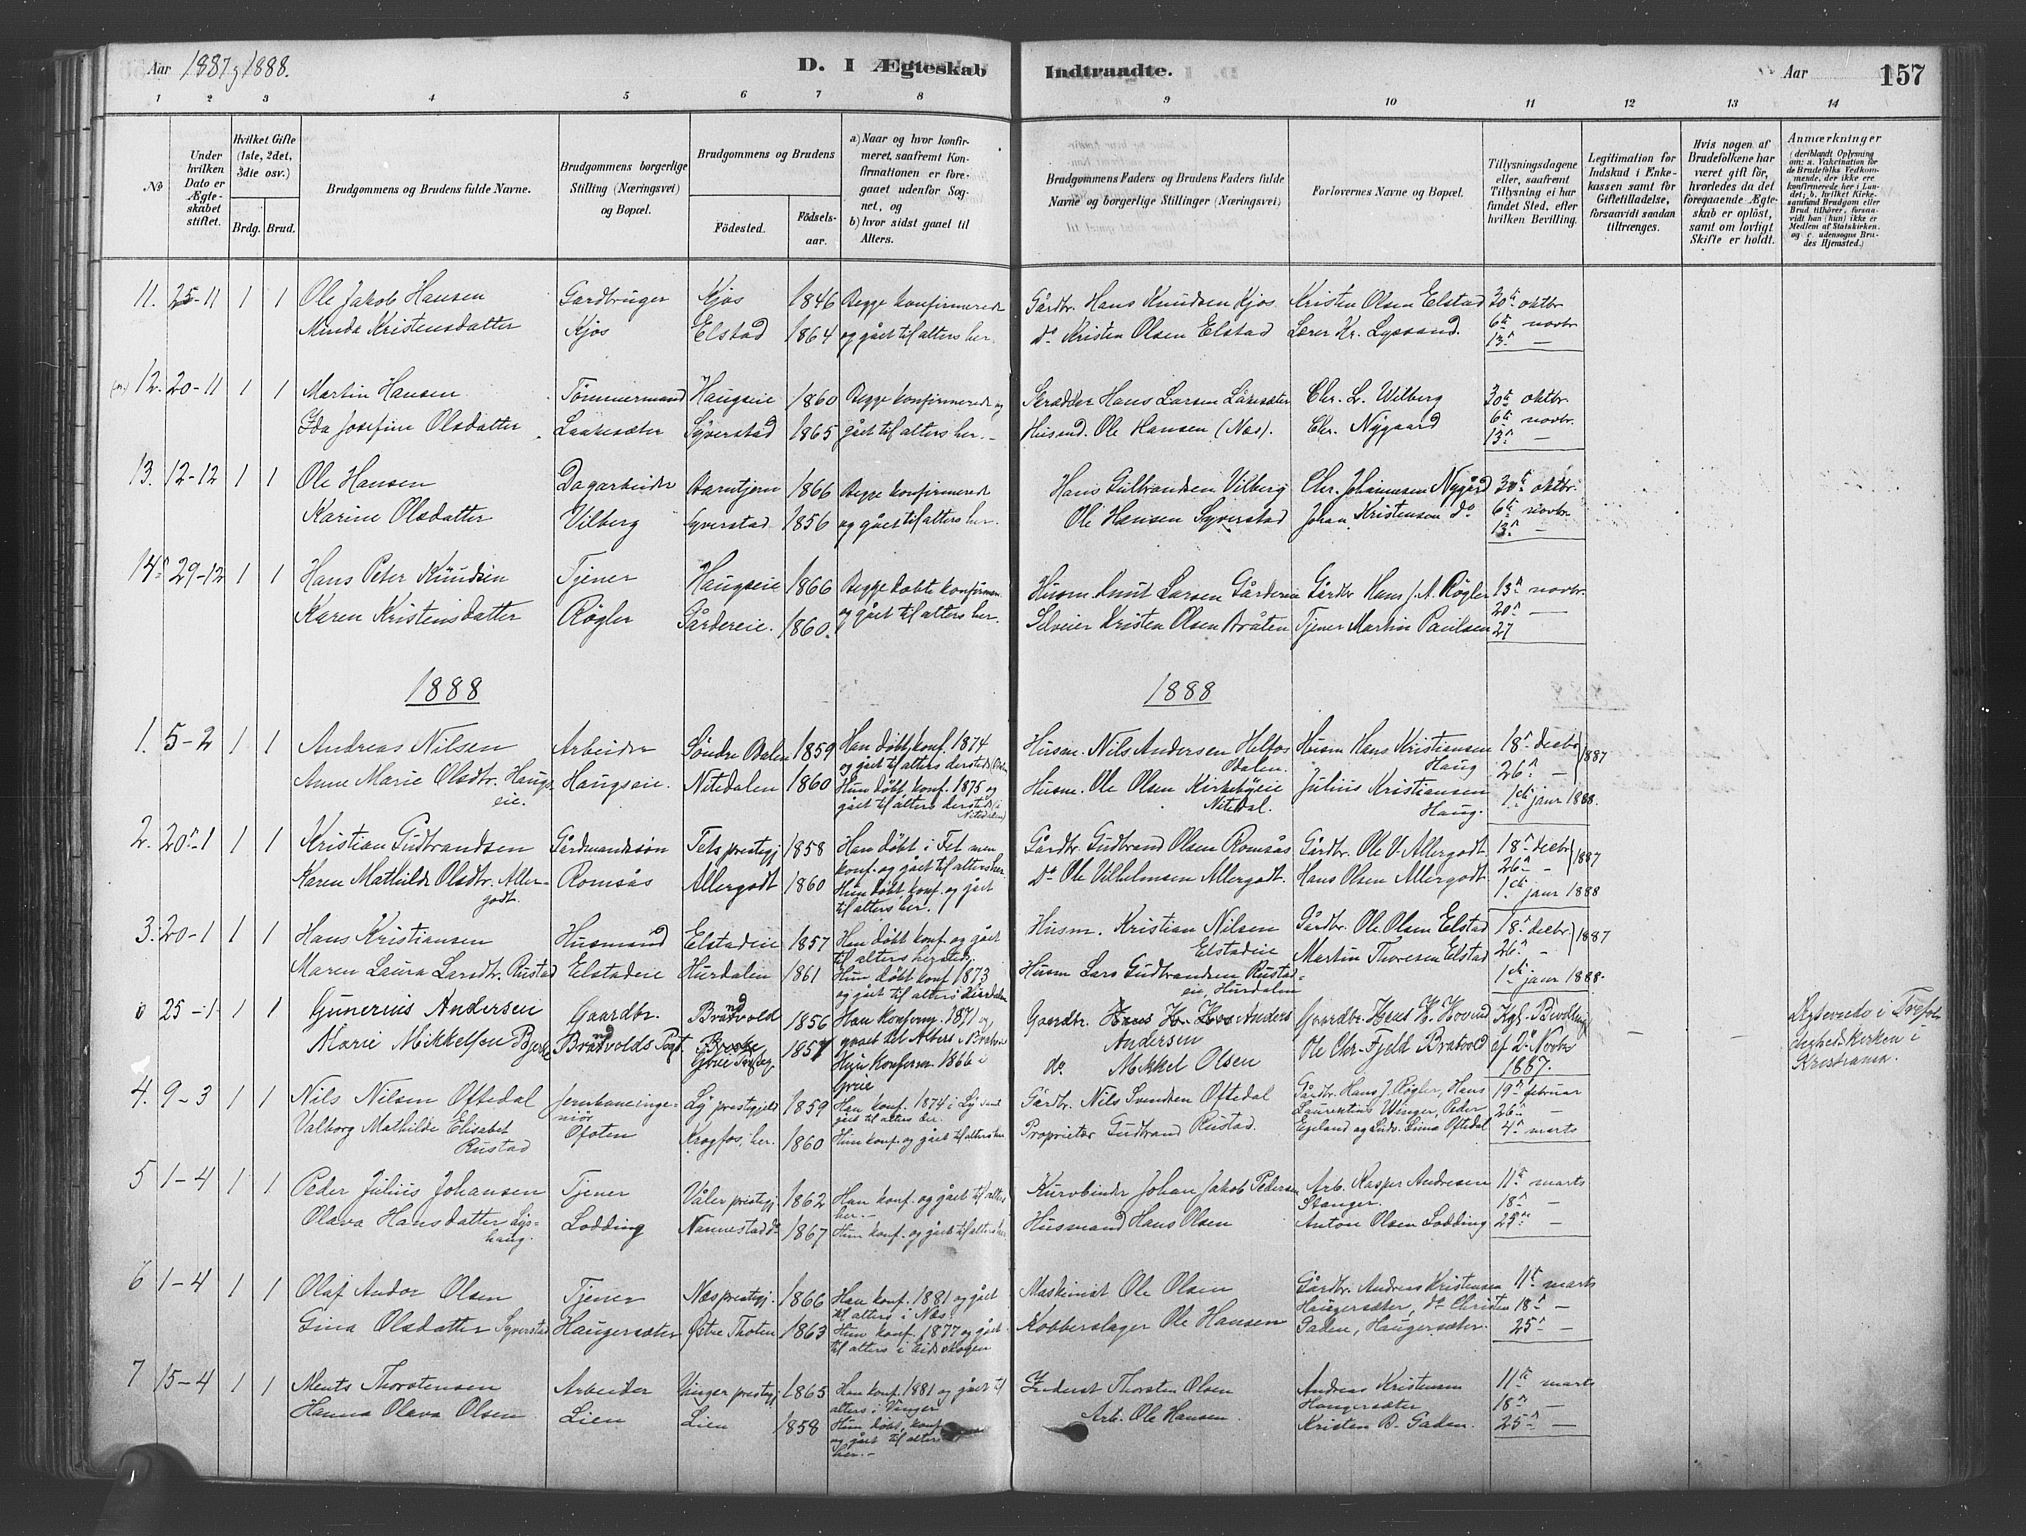 Aar 1887 g 1888.
D. I Ægteskab
Indtraadte.
Aar
157
1 2 3 4 5 6 7 8
9 10 11 12 13 14
No
Under hvilken Dato er Ægteskabet stiftet.
Hvilket Gifte (1ste, 2det, 3die osv.)
Brdg. Brud.
Brudgommens og Brudens fulde Navne.
Brudgommens borgerlige Stilling (Næringsvei) og Bopæl.
Brudgommens og Brudens
Fødested.
Fødselsaar.
a) Naar og hvor konfirmeret, saafremt Konfirmationen er foregaaet udenfor Sognet, og
b) hvor sidst gaaet til Alters.
Brudgommens Faders og Brudens Faders fulde Navne og borgerlige Stillinger (Næringsvei)
Forlovernes Navne og Bopæl.
Tillysningsdagene eller, saafremt Tillysning ei har fundet Sted, efter hvilken Bevilling.
Legitimation for Indskud i Enkekassen samt for Giftetilladelse, forsaavidt saadan tiltrænges.
Hvis nogen af Brudefolkene har været gift før, hvorledes da det foregaaende Ægteskab er opløst, samt om lovligt Skifte er holdt.
Anmærkninger
(deriblandt Oplysning om: a. Vakcination for de Brudefolks Vedkommende, der ikke ere konfirmerede her i Landet; b. hvilket Kirkesamfund Brudgom eller Brud tilhører, forsaavidt han (hun) ikke er Medlem af Statskirken, og c. udensogns Brudes Hjemsted.)
11. 25-11 1 1 Ole Jakob Hansen Gardbruger Kjos 1846 Begge konfirmerede Gårdbr. Hans Knudsen Kjos Kristen Olsen Elstad 30te oktbr.
Minda Kristensdatter Kjos Elstad 1864 og gået til alters her. do Kristen Olsen Elstad Lærer Kr. Lyssand. 6te novbr.
13. —
12. 20-11 1 1 Martin Hansen Tømmermand Haugseie 1860 Begge konfirmerede og Skrædder Hans Larsen Låkesæter Chr. L. Wilberg 30te oktbr
Ida Josefine Olsdatter Laakesæter Syverstad 1865 gået til alters her. Husmd. Ole Hansen (Næs). Chr. Nygaard 6te novbr.
13. —
13. 12-12 1 1 Ole Hansen Dagarbeider 1866 Begge konfirmerede Hans Gulbrandsen Vilberg Chr. Johannesen Nygård 30te oktbr.
Karine Olsdatter Vilberg Syverstad. 1856 og gået til alters her. Ole Hansen Syverstad Johan Kristensen do 6te novbr.
13. —
14. 29-12 1 1 Hans Peter Knudsen Tjener Haugseie 1866 Begge døbte konfirmer. Husm. Knut Larsen Gårdereie Gårdbr Hans J. A. Røgler 13. novbr.
Karen Kristensdatter Røgler Gårdereie. 1860. og gået til alters her. Selveier Kristen Olsen Bråten Tjener Martin Paulsen 20. —
27
1888 1888
1. 5-2 1 1 Andreas Nilsen Arbeider Søndre Odalen 1859 Han døbt, konf. 1874 og gået til alters dersteds Husm. Nils Andersen Odalen. Husm Hans Kristiansen Haug 18. decbr 26. — 1887
Anne Marie Olsdtr. Haugseie Haugseie. Nitedalen 1860 Hun døbt konf. 1875 og gået til alters dersteds (i Nitedalen) Husm. Ole Olsen Kirkebyeie Nitedal. Julius Kristiansen Haug. 1ste janr 1888.
2. 20-1 1 1 Kristian Gudbrandsen Gårdmandssøn Fets prestegj 1858 Han døbt i Fet men konf. og gået til alters her Gårdbr. Gudbrand Olsen Romsås Gårdbr. Ole V. Allergodt 18. decbr 26. — 1887
Karen Mathilde Olsdtr. Allergodt. Romsås Allergodt 1860 Hun døbt konf. og gået til alters her. do Ole Vilhelmsen Allergodt. Hans Olsen Allergodt. 1ste janr 1888
3. 20-1 1 1 Hans Kristiansen Husmand Elstadeie 1857 Han døbt konf. og gået til alters hersteds. Husm. Kristian Nilsen Elstadeie Gårdbr. Ole Olsen Elstad 18. decbr 26. — 1887
Maren Laura Larsdtr. Rustad Elstadeie Hurdalen 1861 Hun døbt konf. 1873 og gået til alters i Hurdalen Husm Lars Gudbrandsen Rustadeie, Hurdalen Martin Thoresen Elstad 1ste janr 1888.
0 25-1 1 1 Gunerius Andersen Gaardbr. Brandvold 1856 Han konferm. 1871 og gaaet til Alters i Gaardbr. Anders Andersen Gaardbr. Hans H. Hovind Kgl. Bevilling
Marie Mikkelsen Brandvolds Pgt. 1857 Hun konferm 1866 i Grue do. Mikkel Olsen Ole Chr. Fjeld Bratvold af 2. Novbr 1887.
Ægteviede i Trefoldighedskirken i Kristiania.
4. 9-3 1 1 Nils Nilsen Oftedal Jernbaneingeniør Ly prestegjeld 1859 Han konf. 1874 i Ly samt gået til alters der. Gårdbr. Nils Svendsen Oftedal Gårdbr. Hans J. Røgler, Hans Laurentius Winger, Peder 19. februar
Valborg Mathilde Elisabet Rustad Ofoten Krogfos, her. 1860 Hun konf. og gået til alters her Proprietær Gudbrand Rustad. Egeland og Sina Oftedal 26. — 4. marts
5 1-4 1 1 Peder Julius Johansen Tjener Våler prestegj. 1862 Han konf. og gået til alters her. Kurvbinder Johan Jakob Pedersen Arb. Kasper Andresen Stanger 11. marts 18. —
Olava Hansdatter Lodding Nannestad do 1867 Hun konf. og gået til alters her Husmand Hans Olsen Anton Olsen Lodding 25. —
6 1-4 1 1 Olaf Andor Olsen Tjener Næs prestegj. 1866 Han konf. 1881 og gået til alters i Næs. Maskinist Ole Olsen Gårdbr. Andreas Kristensen 11. marts
Gina Olsdatter Syverstad Haugersæter Østre Thoten 1863 Hun konf. 1877 og gået til alters i Eidskogen Kobberslager Ole Hansen Haugersæter, do Christen Gaden, Haugersæter. 18. — 25. —
7 15-4 1 1 Ments Thorstensen Arbeider Vinger prestegj 1865 Han konf. 1881 og gået til alters i Vinger Inderst Thorsten Olsen Andreas Kristensen Haugersæter 11. marts 18. —
Hanna Olava Olsen Lien Lien 1858 Hun døbt, konf. og gået til alters her. Arb. Ole Hansen. Kristen B. Gaden. 25. —